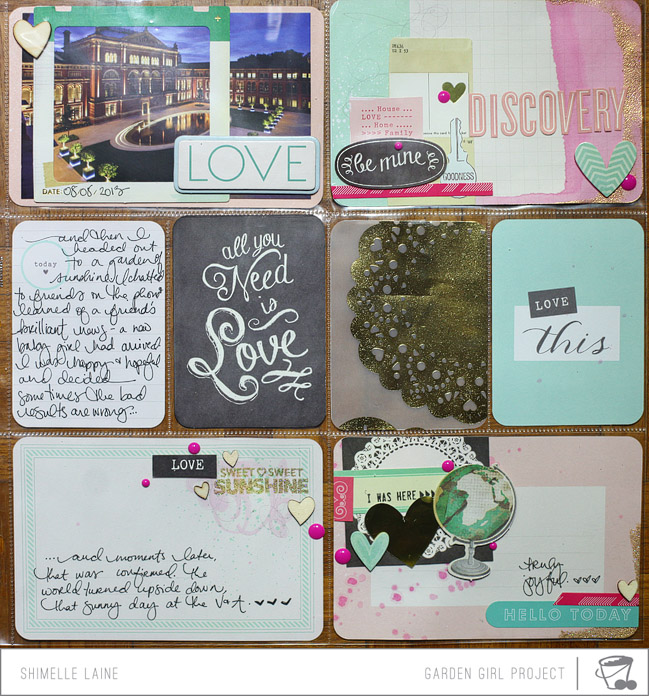 LOVE
DATE: 08.08.2013
.... House ...
LOVE --------
... Home ...
>>>> Family
be mine
GOODNESS
DISCOVERY
today
and then I
headed out
to a garden of
sunshine. I chatted
to friends on the phone
learned of a friend's
brilliant news - a new
baby girl had arrived
I was happy & hopeful
and decided
sometimes the bad
results are wrong...
all you
Need
is
Love
LOVE
this
LOVE
SWEET SWEET
SUNSHINE
...and moments later,
that was confirmed. The
world turned upside down,
that sunny day at the V&A.
I WAS HERE
truly
joyful.
HELLO TODAY
SHIMELLE LAINE
GARDEN GIRL PROJECT